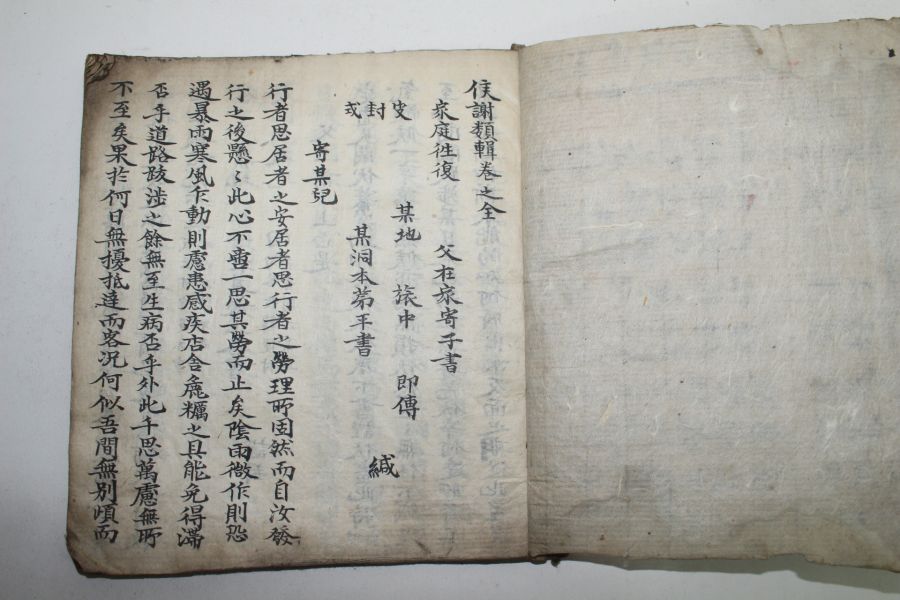 候謝類輯卷之全
家庭往復 父在家寄子書
某地 旅中 即傳
封式
某洞本第平書 緘
寄某兒
行者思居者之安居者思行者之勞理所固然而自汝發
行之後懸〻此心不啻一思其勞而止矣陰雨微作則恐
遇暴雨寒風乍動則慮患感疾店舍麁糲之具能免得滯
否乎道路跋涉之餘無至生病否乎外此千思萬慮無所
不至矣果於何日無擾抵達而客況何似吾間無別頃而